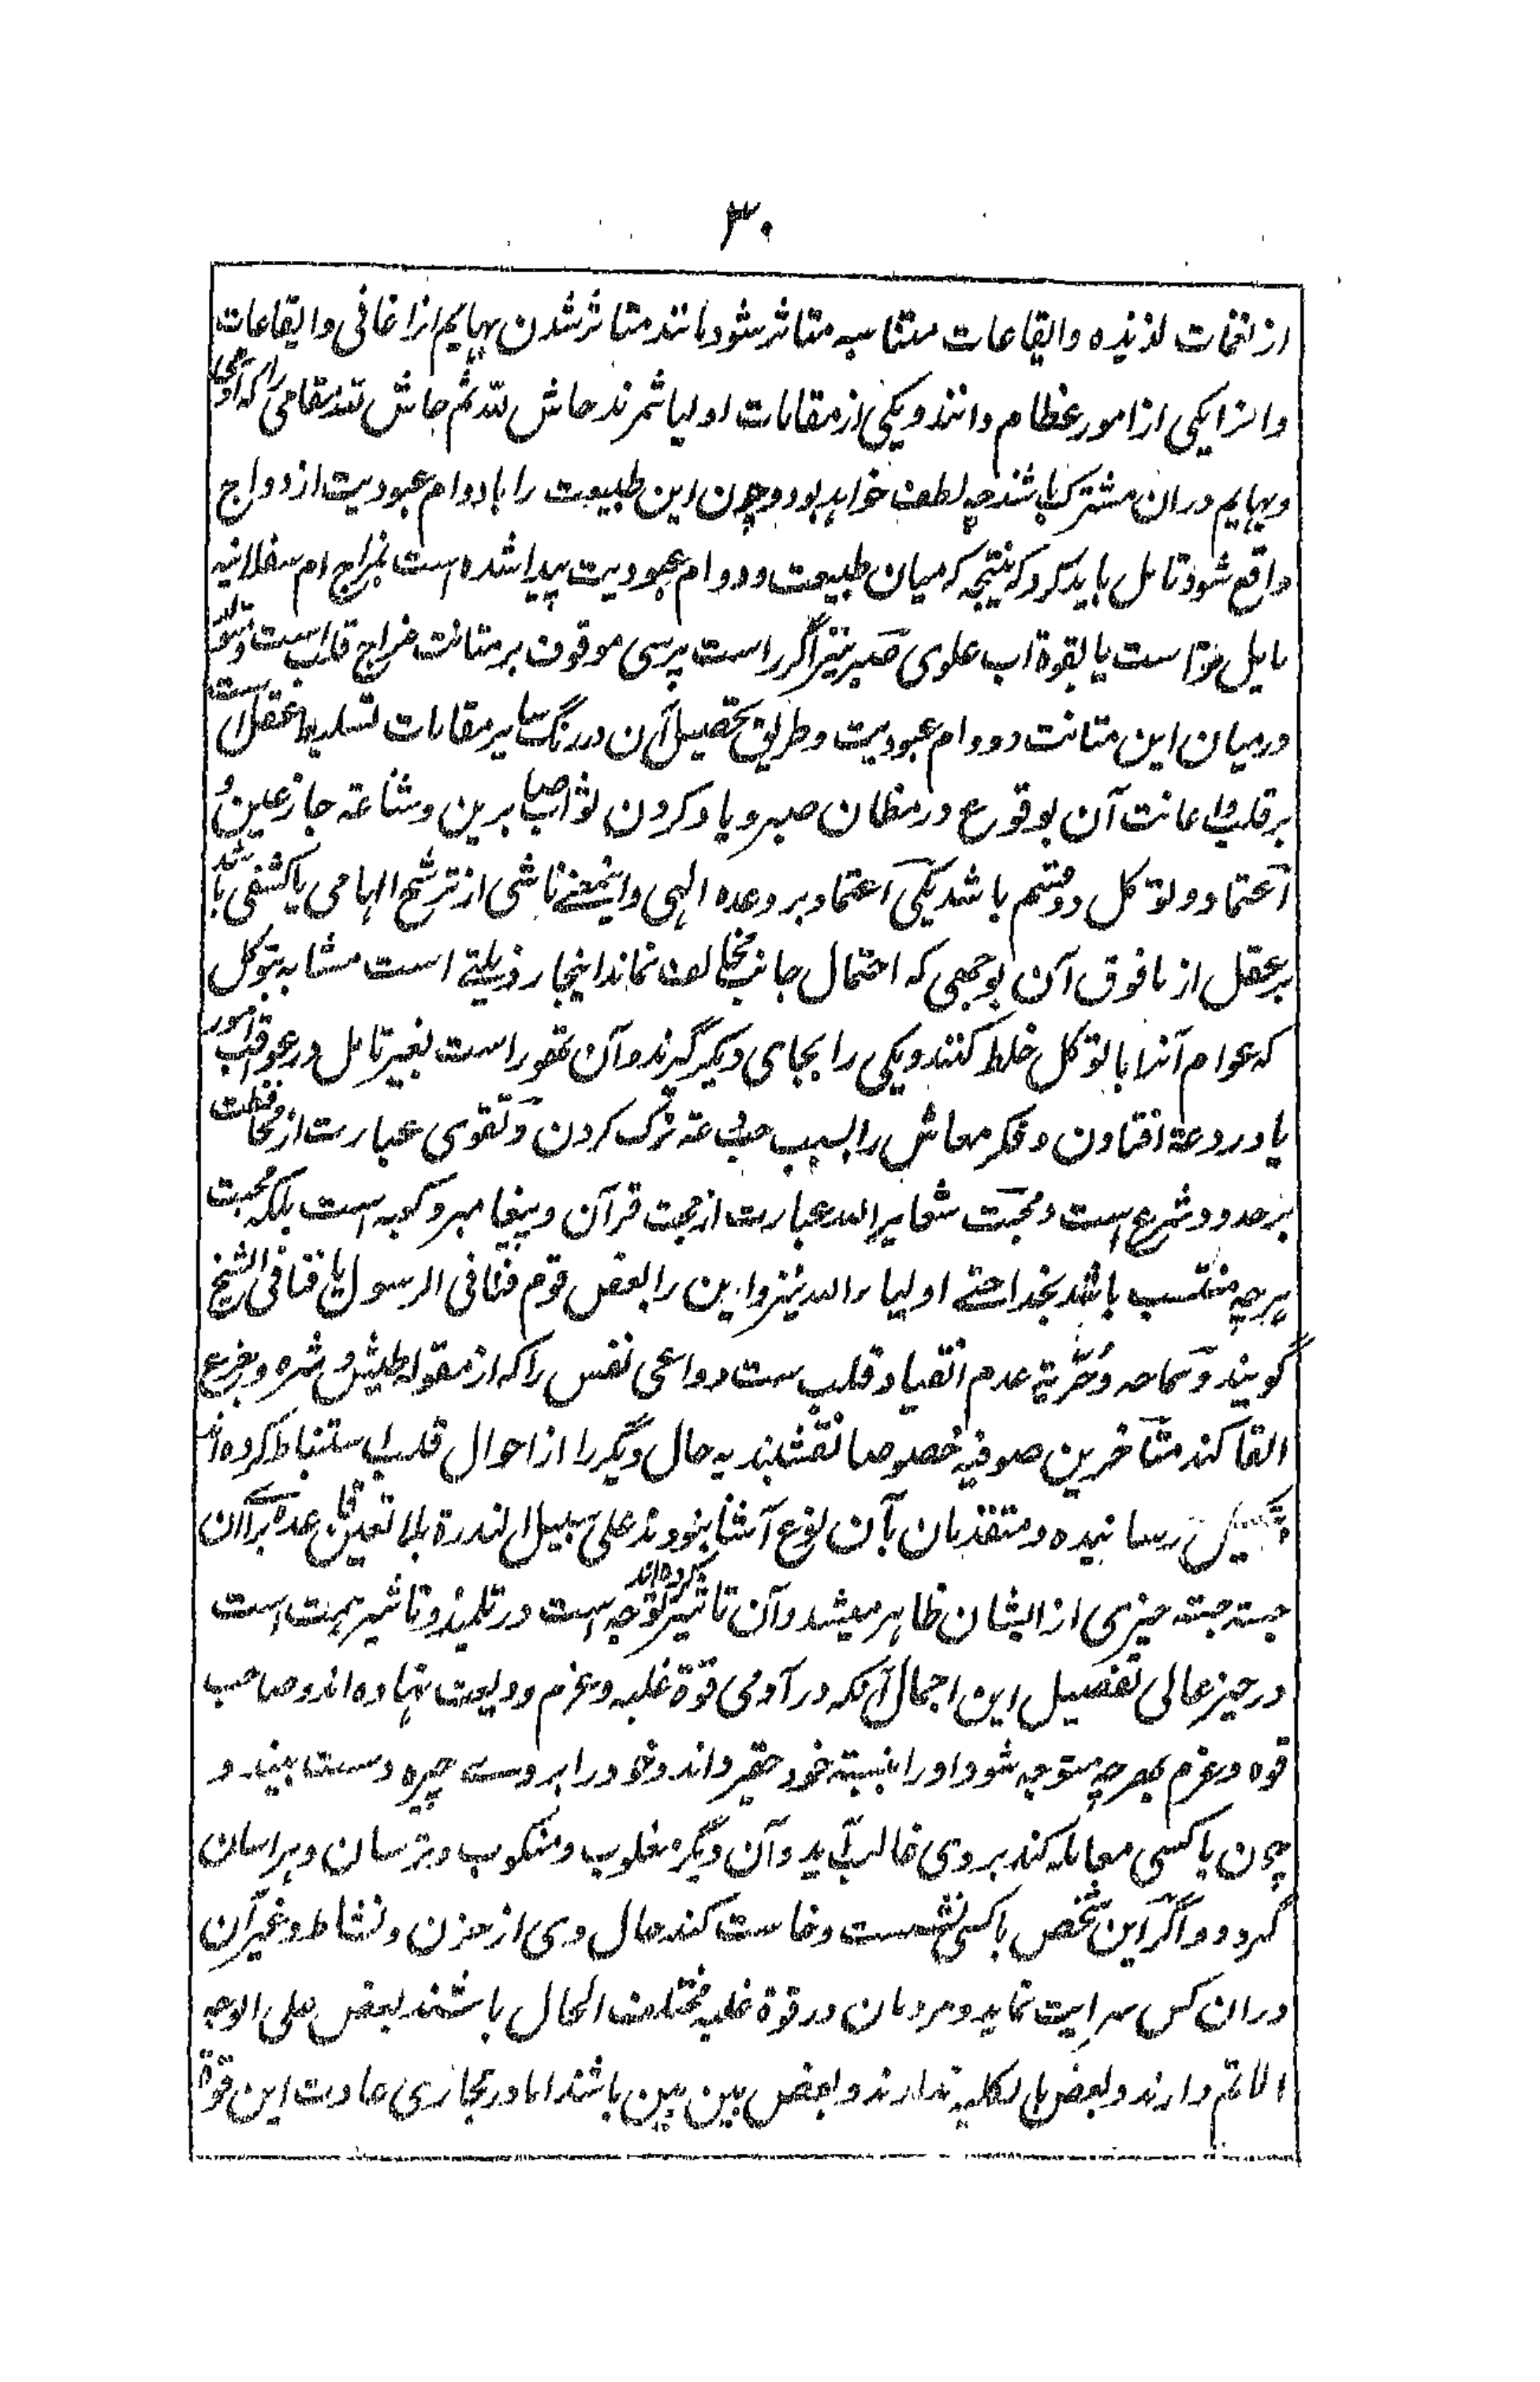 ۳۰
از نغمات لذیذه وایقاعات متناسبه متاثر شود مانند متاثر شدن بهایم از اغانی وایقاعات
وانرا یکی از امور عظام دانند ویکی از مقامات اولیا شمرند حاش لله ثم حاش لله مقامی را که آدمی
وبهایم دران مشترک باشند چه لطف خواهد بود وچون این طبیعت را با دوام عبودیت ازدواج
واقع شود تامل باید کرد که نتیجه که میان طبیعت ودوام عبودیت پیدا شده است بمزاج ام سفلانیه
مایل تر است یا بقوة اب علوی صبر نیز اگر راست پرسی موقوف بر متانت مزاج قلب است وتولد
درمیان این متانت ودوام عبودیت وطریق تحصیل آن در رنگ سایر مقامات تسلیط عقل است
بر قلب واعانت آن بوقوع در مظان صبر ویاد کردن ثواب صابرین وشناعة جازعین و
اعتماد وتوکل دو قسم باشد یکی اعتماد بر وعده الهی واینمعنی ناشی از ترشح الهامی یا کشفی باشد
بر عقل از مافوق آن بوجهی که احتمال جانب مخالف نماند اینجا رذیلتی است مشابه بتوکل
که عوام آنرا با توکل خلط کنند ویکی را بجای دیگر گیرند وآن تهور است بغیر تامل در عواقب امور
یا در دعة افتادن وفکر معاش را بسبب حب دعة ترک کردن وتقوی عبارت از محافظت
بر حدود شرع است ومحبت شعایر الله عبارت از محبت قرآن وپیغامبر وکعبه است بلکه محبت
هر چه منتسب باشد بخدا حتے اولیاء الله نیز واین را بعض قوم فنا فی الرسول یا فنا فی الشیخ
گویند وسماحه وحریة عدم انقیاد قلب ست دواعی نفس را که از مقوله طیش وشره وجزع
القا کند متأخرین صوفیه خصوصا نقشبندیه حال دیگر را از احوال قلب استنباط کرده اند
رسانیده ومتقدمان بآن نوع آشنا نبودند علی سبیل الندرة بلا تعیین قاعدة برای آن
جسته جسته چیزی از ایشان ظاهر میشد وآن تاثیر کرده اند توجه است در تلمیذ وتاثیر همت است
در حیز عالی تفصیل این اجمال آنکه در آدمی قوة غلبه وعزم ودیعت نهاده اند وصاحب
قوه وعزم بهر چه متوجه شود اورا بنسبة خود حقیر داند وخود را بروے چیره دست بیند و
چون با کسی معامله کند بروی غالب آید وآن دیگر مغلوب ومنکوب وترسان وهراسان
گردد واگر این شخص با کسی نشست وخاست کند حال وی از حزن ونشاط وغیر آن
دران کس سرایت نماید ومردمان در قوة غلبه مختلف الحال باشند بعض علی الوجه
الاتم دارند وبعض بالکلیه ندارند وبعض بین بین باشند اما در مجاری عادت این قوة